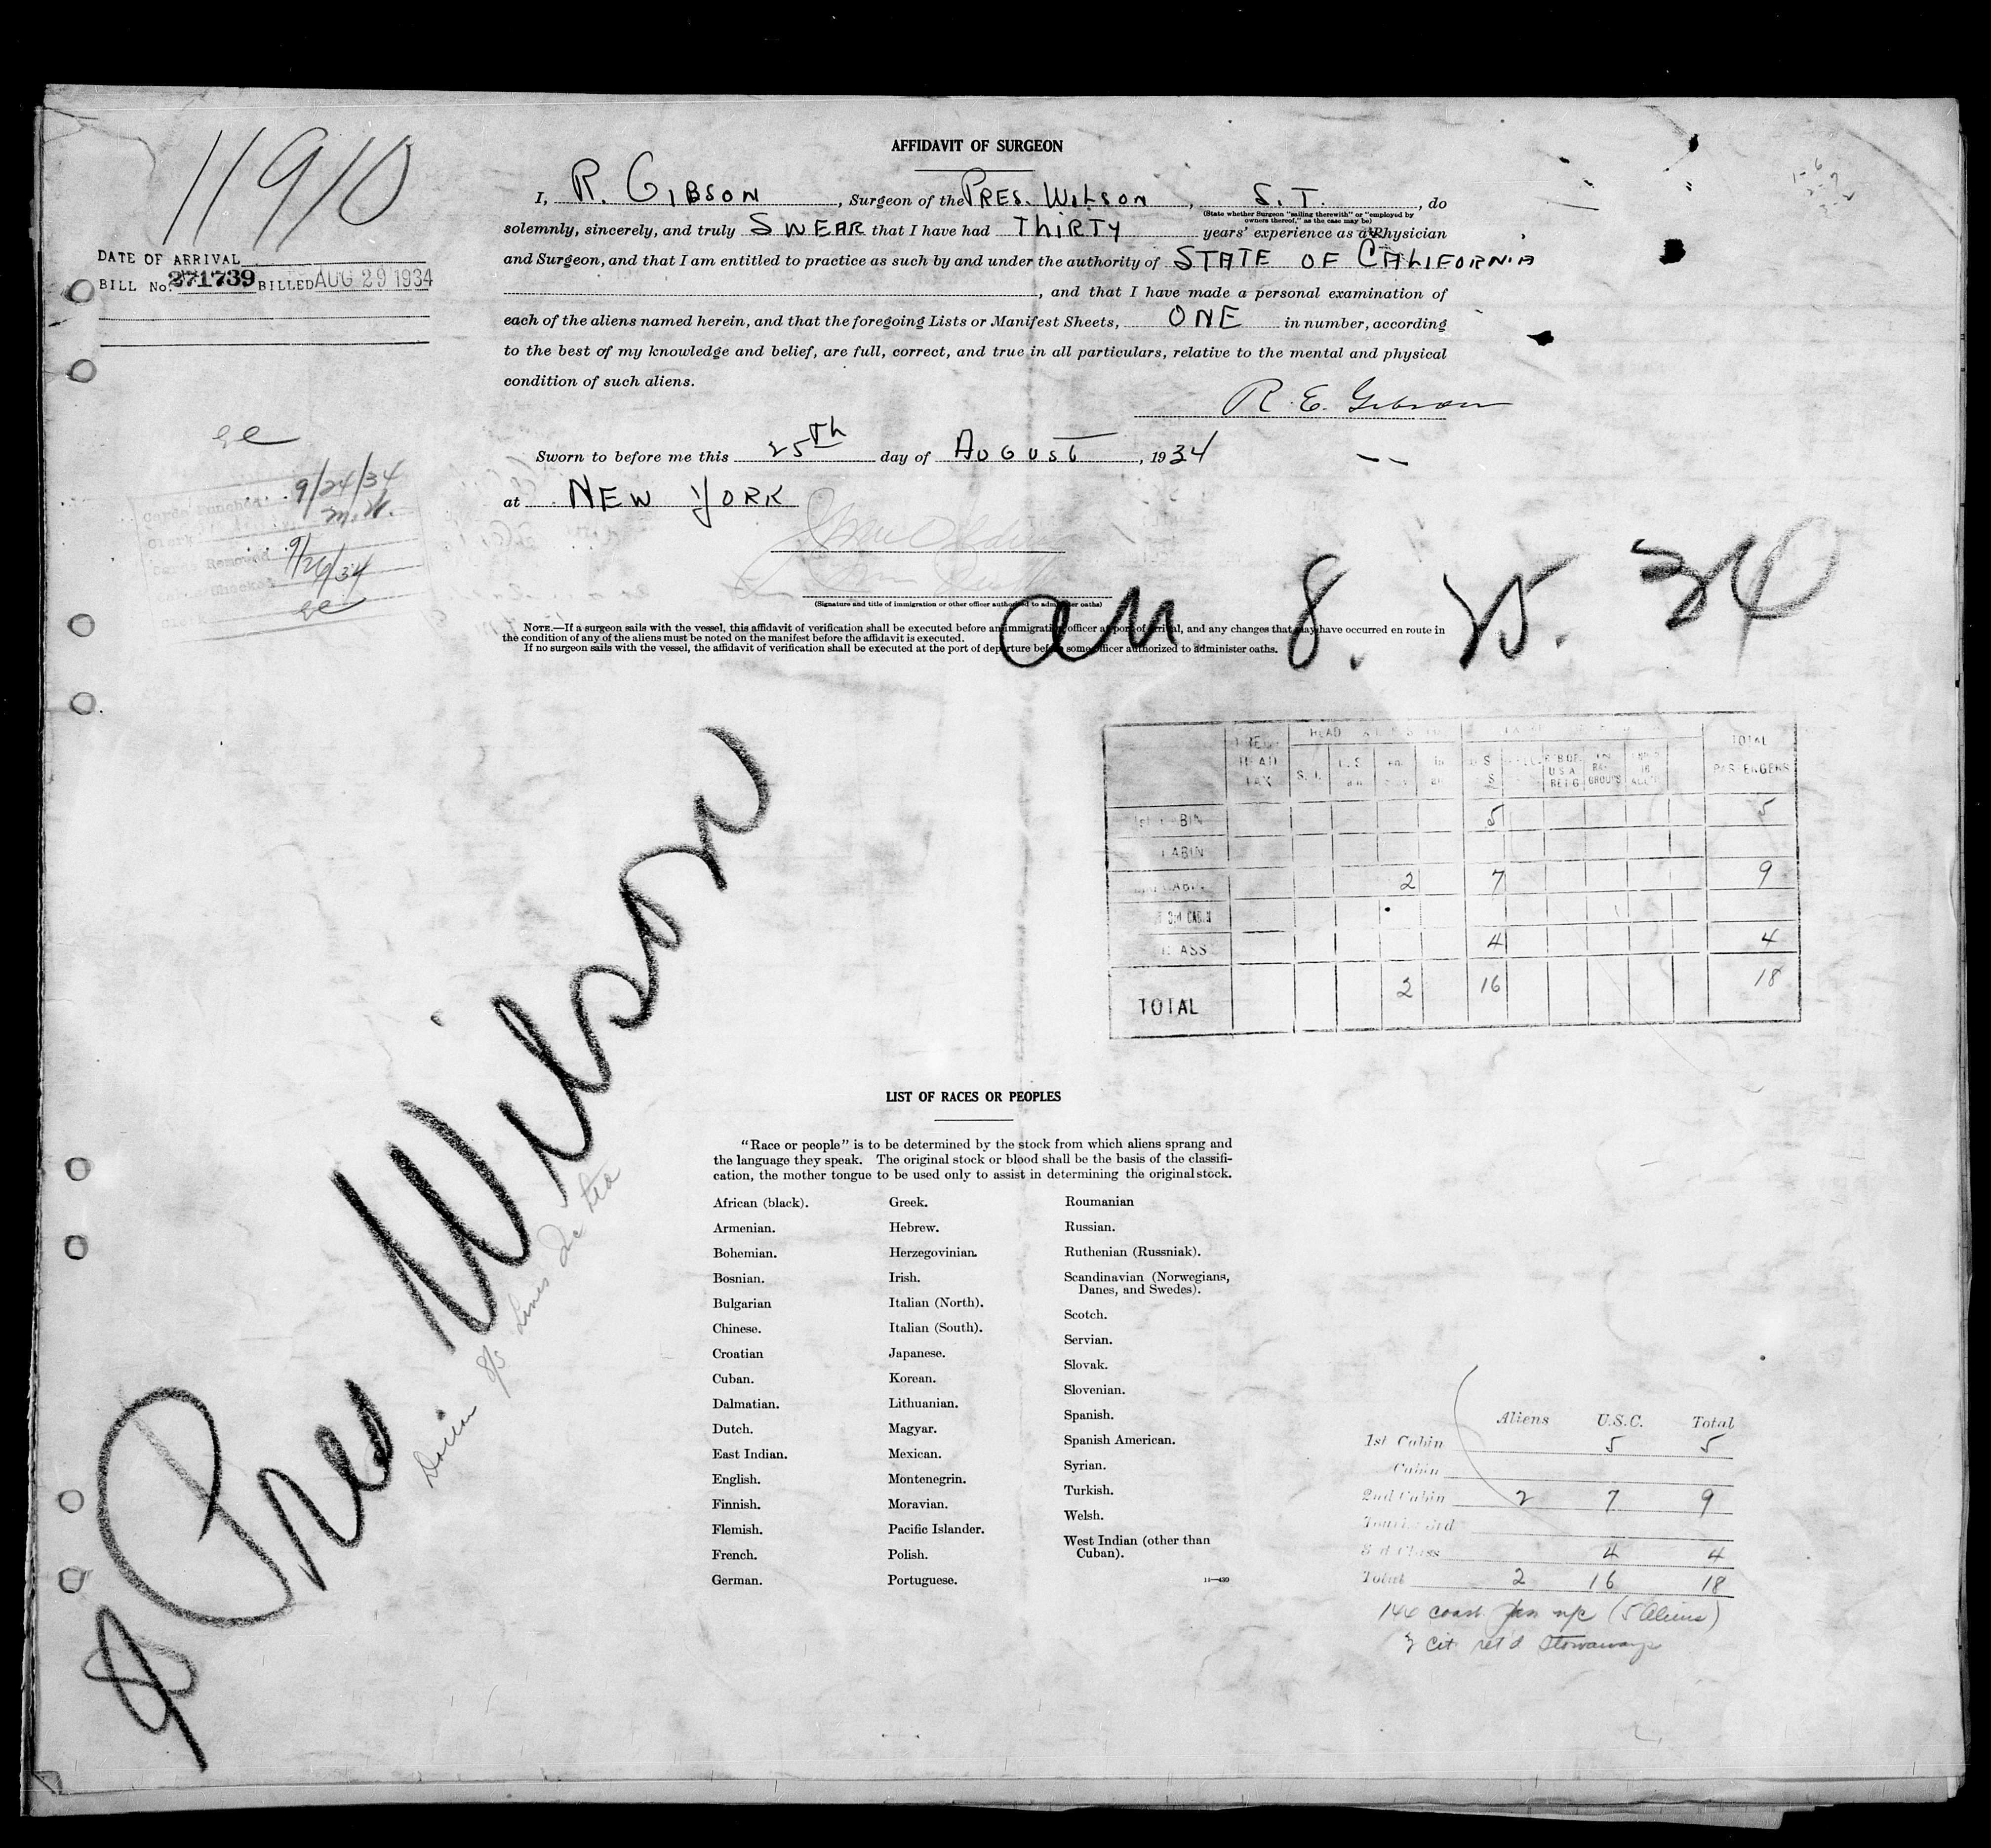 11910
DATE OF ARRIVAL
BILL No. 271739 BILLED AUG 29 1934
AFFIDAVIT OF SURGEON
I, R. GIBSON, Surgeon of the PRES. WILSON, S. T., do
(State whether Surgeon "sailing therewith" or "employed by
owners thereof," as the case may be)
solemnly, sincerely, and truly SWEAR that I have had THIRTY years' experience as a Physician
and Surgeon, and that I am entitled to practice as such by and under the authority of STATE OF CALIFORNIA
, and that I have made a personal examination of
each of the aliens named herein, and that the foregoing Lists or Manifest Sheets, ONE in number, according
to the best of my knowledge and belief, are full, correct, and true in all particulars, relative to the mental and physical
condition of such aliens.
R. E. Gibson
Sworn to before me this 25th day of AUGUST, 1934
at NEW YORK
(Signature and title of immigration or other officer authorized to administer oaths)
NOTE.—If a surgeon sails with the vessel, this affidavit of verification shall be executed before an immigration officer at port of arrival, and any changes that may have occurred en route in
the condition of any of the aliens must be noted on the manifest before the affidavit is executed.
If no surgeon sails with the vessel, the affidavit of verification shall be executed at the port of departure before some officer authorized to administer oaths.
Cards Punched 9/24/34
Clerk M.W.
Removed 9/26/34
Checked
8. 25. 34
HEAD TAX
TOTAL PASSENGERS
5 5
CABIN
2 7 9
3rd CABIN
4 4
TOTAL 2 16 18
Pres Wilson
LIST OF RACES OR PEOPLES
"Race or people" is to be determined by the stock from which aliens sprang and
the language they speak. The original stock or blood shall be the basis of the classifi-
cation, the mother tongue to be used only to assist in determining the original stock.
African (black).
Armenian.
Bohemian.
Bosnian.
Bulgarian
Chinese.
Croatian
Cuban.
Dalmatian.
Dutch.
East Indian.
English.
Finnish.
Flemish.
French.
German.
Greek.
Hebrew.
Herzegovinian.
Irish.
Italian (North).
Italian (South).
Japanese.
Korean.
Lithuanian.
Magyar.
Mexican.
Montenegrin.
Moravian.
Pacific Islander.
Polish.
Portuguese.
Roumanian
Russian.
Ruthenian (Russniak).
Scandinavian (Norwegians,
Danes, and Swedes).
Scotch.
Servian.
Slovak.
Slovenian.
Spanish.
Spanish American.
Syrian.
Turkish.
Welsh.
West Indian (other than
Cuban).
11—430
Aliens U.S.C. Total
1st Cabin 5 5
Cabin
2nd Cabin 2 7 9
Tourist 3rd
3rd Class 4 4
Total 2 16 18
(5 Aliens)
cit ret'd Stowaways